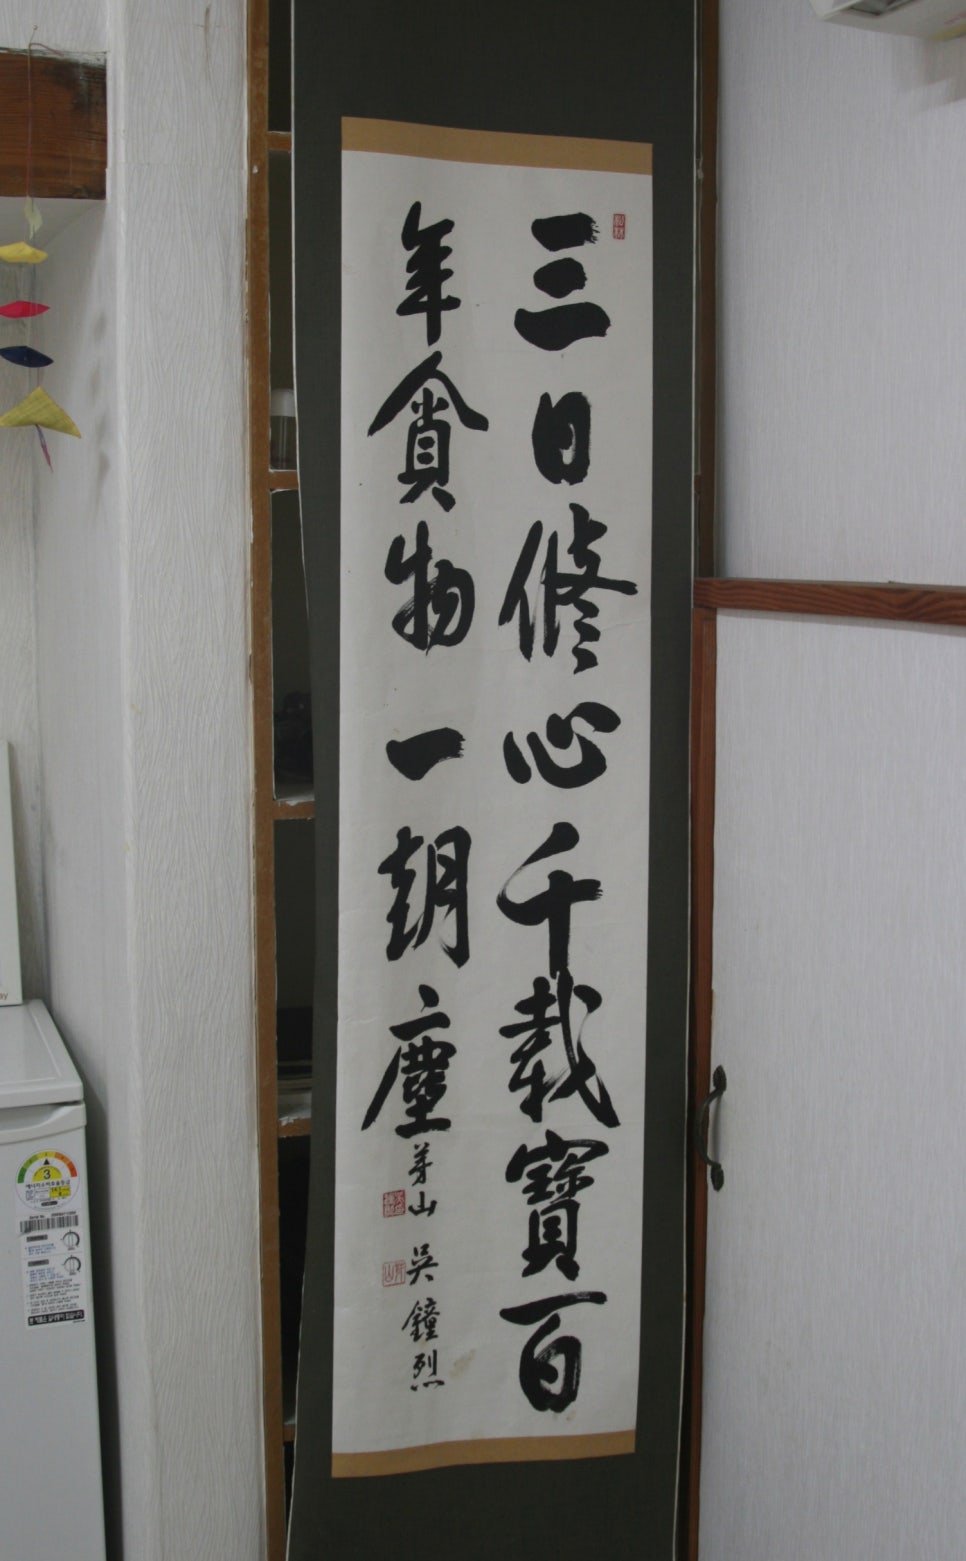 三日修心千載寶百
年貪物一朝塵
芽山 吳鐘烈
3